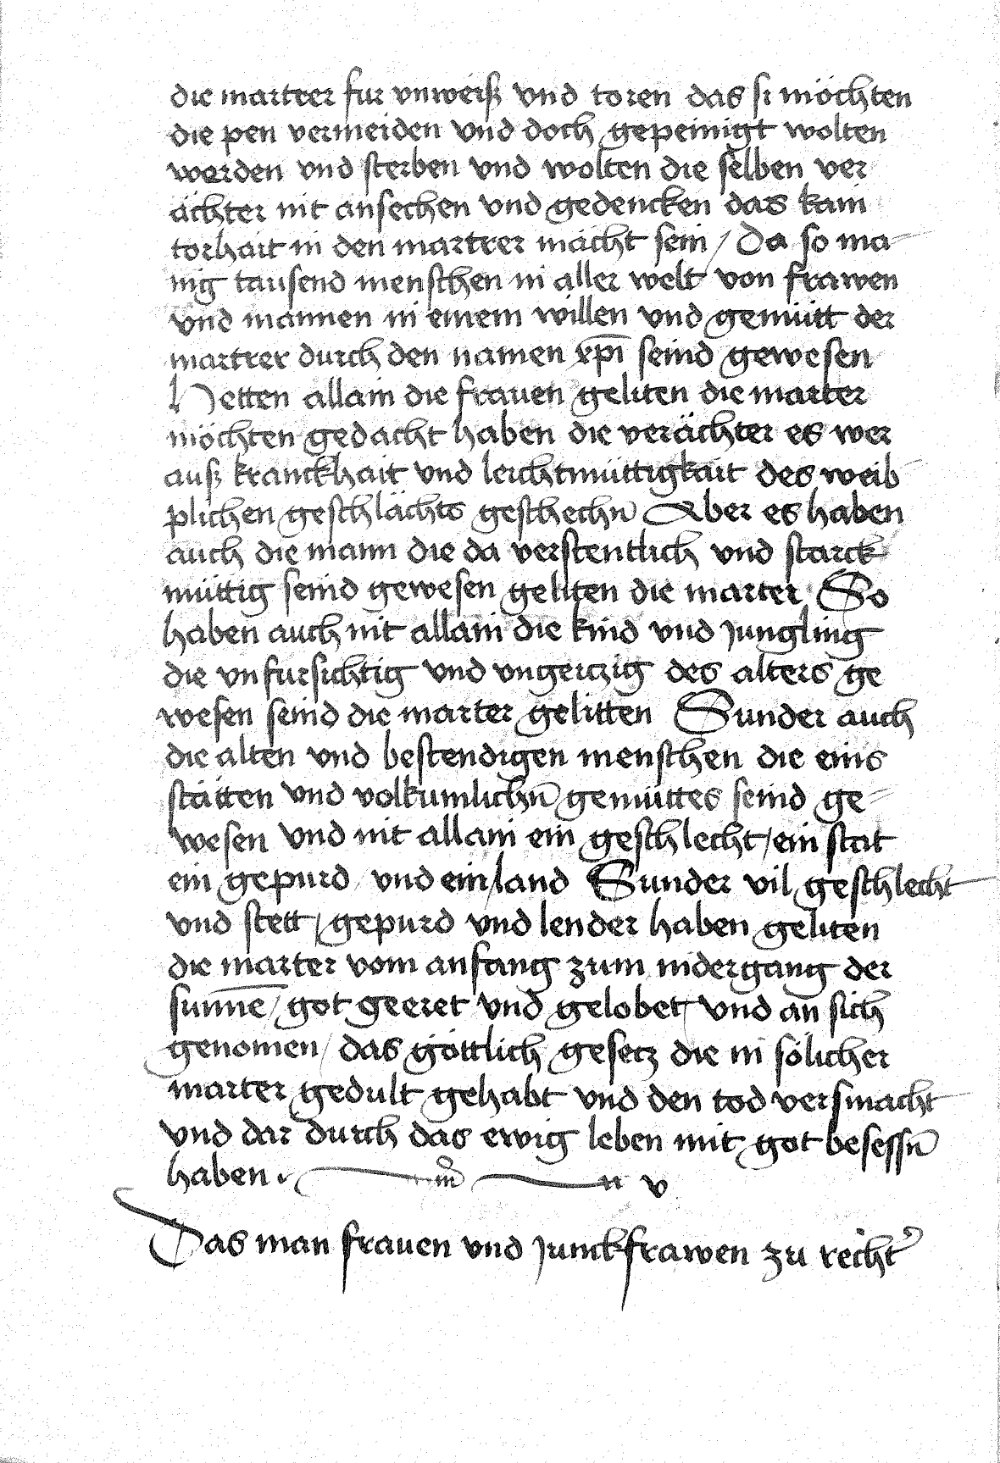 die martrer fur vnweiß vnd toren das si möchten
die pen vermeiden vnd doch gepeinigt wolten
werden vnd sterben vnd wolten die selben ver
ächter nit ansechen vnd gedencken das kain
torhait in den martrer mächt sein / Da so ma-
nig tausend menschen in aller welt von frawen
vnd mannen in einem willen vnd gemütt der
martrer durch den namen xp̄i seind gewesen
Hetten allain die frauen geliten die marter
möchten gedacht haben die verächter es wer
auß kranckhait vnd leichtmüttigkait des weib-
plichen geschlächts geschechn̄ Aber es haben
auch die mann die da verstentlich vnd starck-
müttig seind gewesen geliten die marter So
haben auch nit allain die kind vnd jungling
die vnfursichtig vnd vngerczig des alters ge
wesen seind die marter gelitten Sunder auch
die alten vnd bestendigen menschen die eins
stätten vnd volkumlichn̄ gemüttes seind ge-
wesen vnd nit allain ein geschlecht / ein stat
ein gepurd vnd ein / land Sunder vil geschlecht
vnd stett / gepurd vnd lender haben geliten
die marter vom anfang zum nidergang der
sunn̄e / got geeret vnd gelobet / vnd an sich
genomen / das göttlich gesetz die in sölicher
marter gedult gehabt vnd den tod versmacht
vnd dar durch das ewig leben mit got besessn̄
haben
Das man frauen vnd junckfrawen zu recht᾽